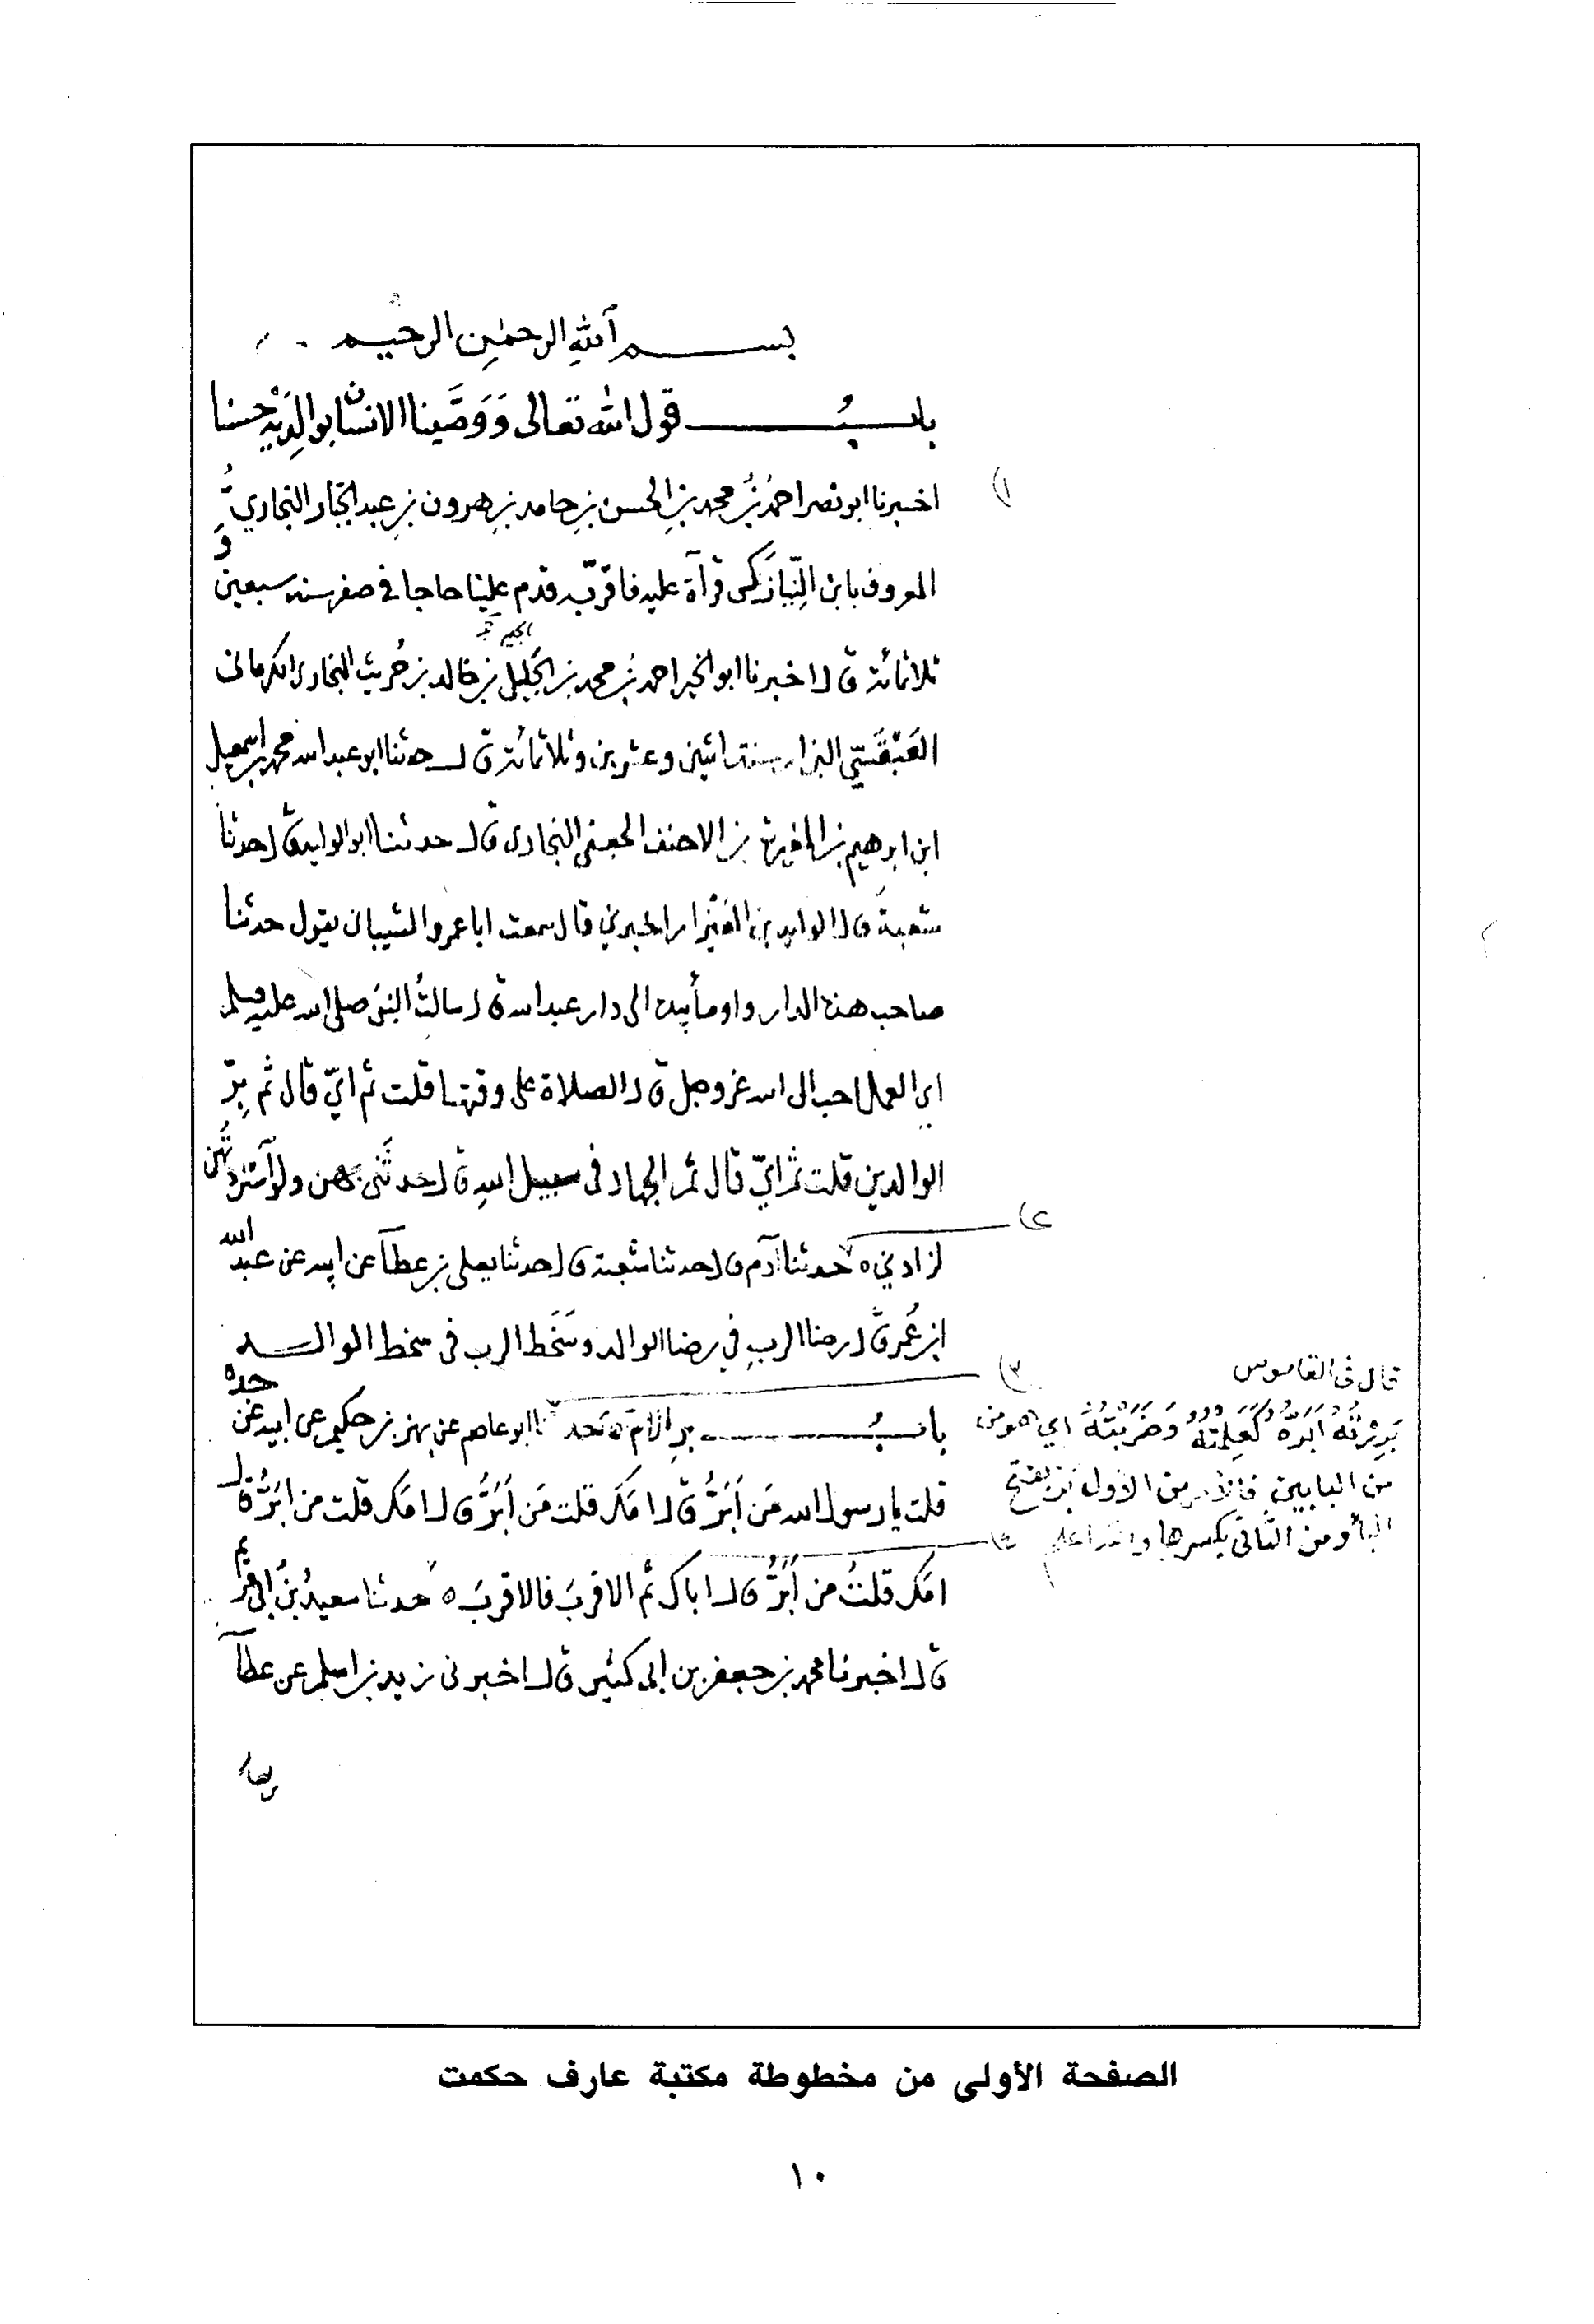 بسم الله الرحمن الرحيم
باب قول الله تعالى وَوَصَّينا الانسان بوالِدَيْهِ حسنا
١) اخبرنا ابو نصر احمدُ بنُ محمد بنِ الحسن بنِ حامد بنِ هرون بنِ عبد الجبار البخاريُّ
المعروف بابن النِّيازَكى قرآة عليه فاقرّ به قدم علينا حاجا في صفر سنة سبعين و
ثلاثمائة قال اخبرنا ابو الخير احمد بنُ محمد بن الجَليل بن خالد بن حُريث البخارى الكرمانى
العَبْقَسِيّ البزار سنة اثنين وعشرين وثلاثمائة قال حدثنا ابو عبد الله محمد بن اسمعيل
ابن ابرهيم بن المغيرة بن الاحنف الجعفى البخارى قال حدثنا ابو الوليد قال حدثنا
شعبة قال الوليد بن العَيْزار اخبرني قال سمعت ابا عمرو الشيبانى يقول حدثنا
صاحب هذه الدار واومأ بيده الى دار عبد الله قال سالتُ النبى صلى الله عليه وسلم
اي العمل احب الى الله عز وجل قال الصلاة على وقتها قلت ثم ايّ قال ثم بِرّ
الوالدين قلت ثم ايّ قال ثم الجهاد فى سبيل اللهِ قال حدثَنى بهن ولو آستزدتُهن
٢)
لزادني ه حدثنا آدم قال حدثنا شعبة قال حدثنا يعلى بن عطآ عن ابيه عن عبد الله
ابن عُمر قال رضا الرب فِي رضا الوالد وسَخَط الرب فى سخط الوالد
٣)
باب بر الام ه حدثنا ابو عاصم عن بهز بن حكيم عن ابيه عن جده
قلت يا رسول الله مَن اَبَرُّ قال امَك قلت مَن اَبَرُّ قال امَك قلت من ابَرُّ قال
امَك قلتُ من اَبَرُّ قال اباك ثم الاقربَ فالاقربَ ه حدثنا سعيدُ بنُ ابى مريم
قال اخبرنا محمد بن جعفر بن ابى كثير قال اخبرنى زيد بن اسلم عن عطآ
قال فى القاموس
بَرِرْتُهُ اَبَرُّهُ كَعَلِمْتُهُ وَضَرَبْتُهُ اي هو من
من البابين فالامر من الاول بفتح
البا ومن الثانى بكسرها والله اعلم
الصفحة الأولى من مخطوطة مكتبة عارف حكمت
١٠